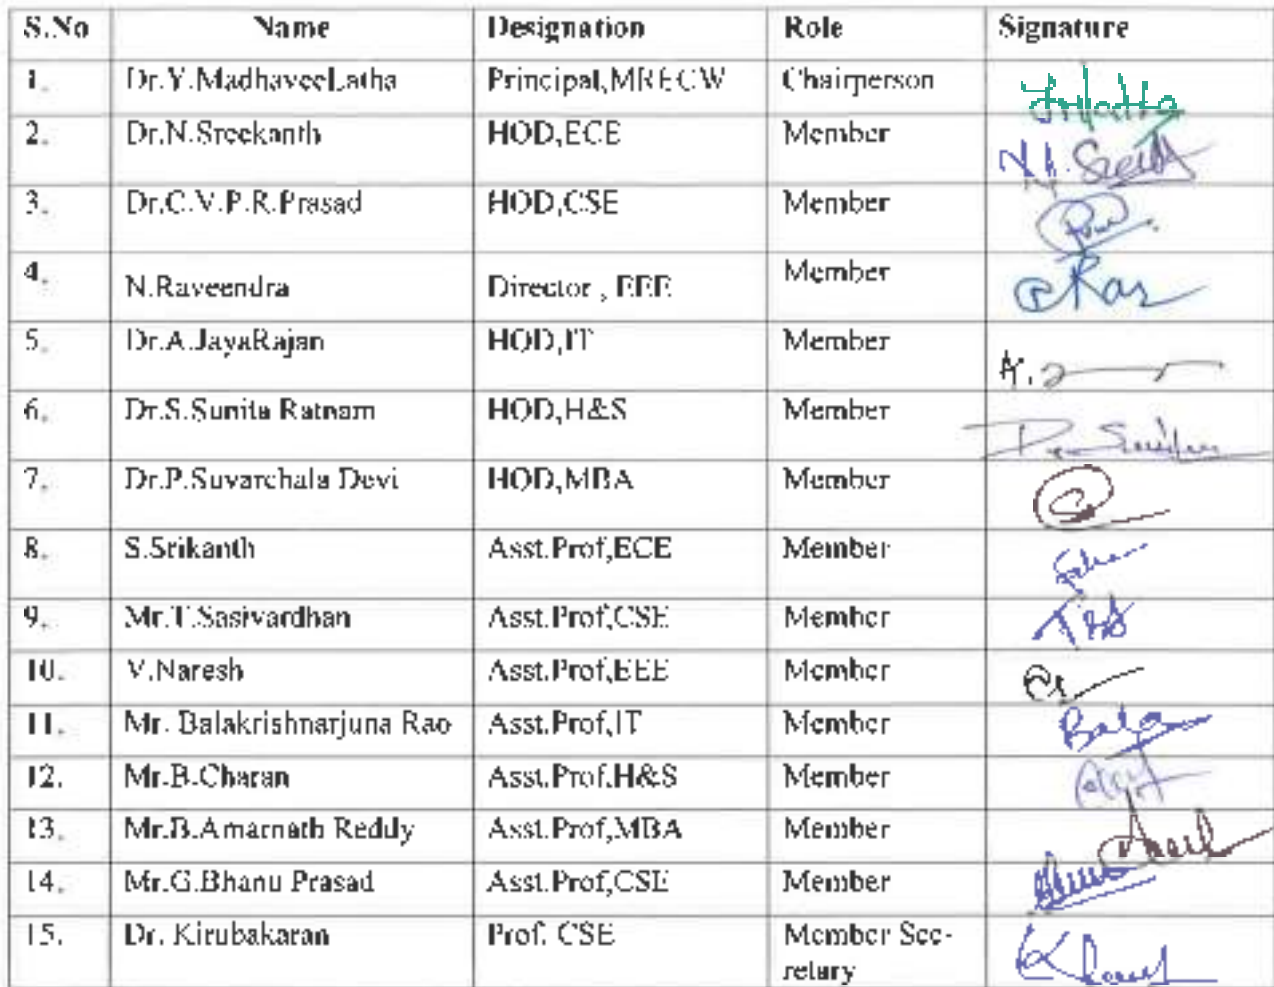 S.No Name Designation Role Signature
1. Dr.Y.MadhaveeLatha Principal,MRECW Chairperson
2. Dr.N.Sreekanth HOD,ECE Member
3. Dr.C.V.P.R.Prasad HOD,CSE Member
4. N.Raveendra Director , EEE Member
5. Dr.A.JayaRajan HOD,IT Member
6. Dr.S.Sunita Ratnam HOD,H&S Member
7. Dr.P.Suvarchala Devi HOD,MBA Member
8. S.Srikanth Asst.Prof,ECE Member
9. Mr.T.Sasivardhan Asst.Prof,CSE Member
10. V.Naresh Asst.Prof,EEE Member
11. Mr. Balakrishnarjuna Rao Asst.Prof,IT Member
12. Mr.B.Charan Asst.Prof.H&S Member
13. Mr.B.Amarnath Reddy Asst.Prof,MBA Member
14. Mr.G.Bhanu Prasad Asst.Prof,CSE Member
15. Dr. Kirubakaran Prof. CSE Member Sec-
retary